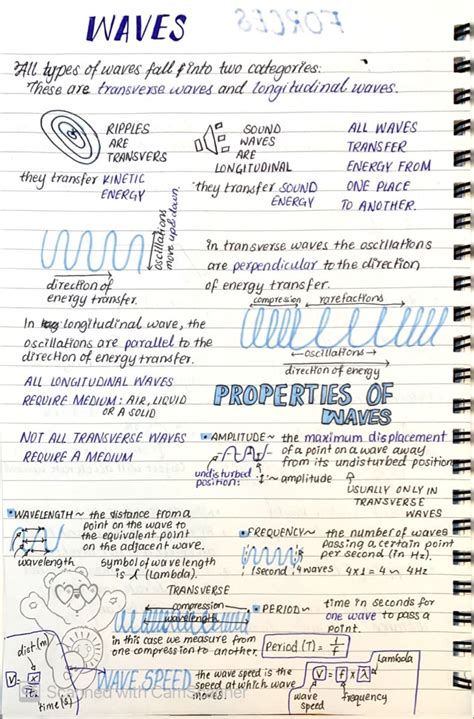 FORCES
WAVES
All types of waves fall into two categories:
These are transverse waves and longitudinal waves.
RIPPLES
ARE
TRANSVERS
they transfer KINETIC
ENERGY
SOUND
WAVES
ARE
LONGITUDINAL
they transfer SOUND
ENERGY
ALL WAVES
TRANSFER
ENERGY FROM
ONE PLACE
TO ANOTHER.
oscillations
move up & down.
direction of
energy transfer.
in transverse waves the oscillations
are perpendicular to the direction
of energy transfer.
compression rarefactions
oscillations
direction of energy
In longitudinal wave, the
oscillations are parallel to the
direction of energy transfer.
ALL LONGITUDINAL WAVES
REQUIRE MEDIUM: AIR, LIQUID
OR A SOLID
NOT ALL TRANSVERSE WAVES
REQUIRE A MEDIUM
PROPERTIES OF
WAVES
• AMPLITUDE ~ the maximum displacement
of a point on a wave away
from its undisturbed position
undisturbed
position:
~ amplitude
USUALLY ONLY IN
TRANSVERSE
WAVES
• WAVELENGTH ~ the distance from a
point on the wave to
the equivalent point
on the adjacent wave.
wavelength
symbol of wavelength
is λ (lambda).
• FREQUENCY ~ the number of waves
passing a certain point
per second (in Hz).
1 second, 4 waves 4x1 = 4 ~ 4Hz
TRANSVERSE
compression
wavelength
in this case we measure from
one compression to another.
• PERIOD ~ time in seconds for
one wave to pass a
point.
Period (T) = 1/f
dist (m)
V = x
time (s)
WAVE SPEED
the wave speed is the
speed at which wave
moves.
Lambda
V = f x λ
wave
speed
frequency
Scanned with CamScanner